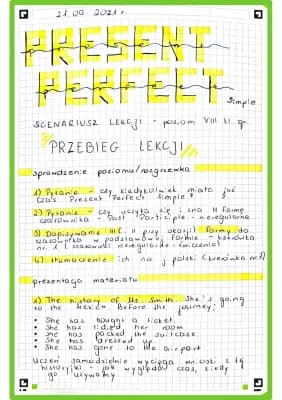 21.09.2021 r.
PRESENT
PERFECT simple
SCENARIUSZ LEKCJI - poziom VIII kl. sp.
PRZEBIEG LEKCJI
sprawdzenie poziomu/rozgrzewka
1) Pytanie - czy kiedykolwiek miało już
czas Present Perfect simple?
2) Pytanie - czy uczyła się i zna III formę
czasownika - Past Participle - nieregularne
3) Dopisywanie III (i II przy okazji) formy do
czasownika w podstawowej formie -
nr. 1 (czasowniki nieregularne - ćwiczenia)
4) tłumaczenie ich na j. polski
prezentacja materiału
1) The history of Ms. Smith. She's going
to the Mexico. Before the journey:
She has bought a ticket.
She has tidied her room
She has packed the suitcase
She has dressed up.
She has gone to the airport
Uczeń samodzielnie wyciąga wnioski z tej
historyjki - jak wygląda czas, kiedy
go używamy